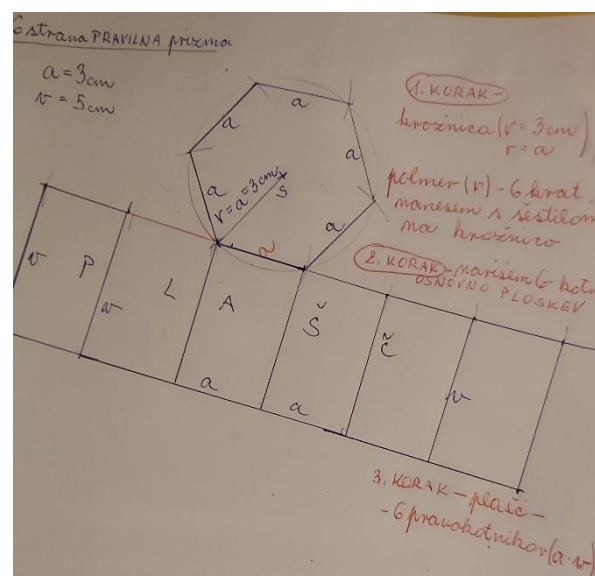 6 strana PRAVILNA prizma
a = 3 cm
v = 5 cm
1. KORAK -
krožnica (r = 3 cm),
r = a
polmer (r) - 6 krat
nanesem s šestilom
na krožnico
2. KORAK - narišem 6-kotn
OSNOVNO PLOSKEV
a
a
a
a
a
a
r = a = 3 cm
S
v
P
v
L
A
Š
Č
v
a
a
3. KORAK - plašč -
- 6 pravokotnikov (a·v)